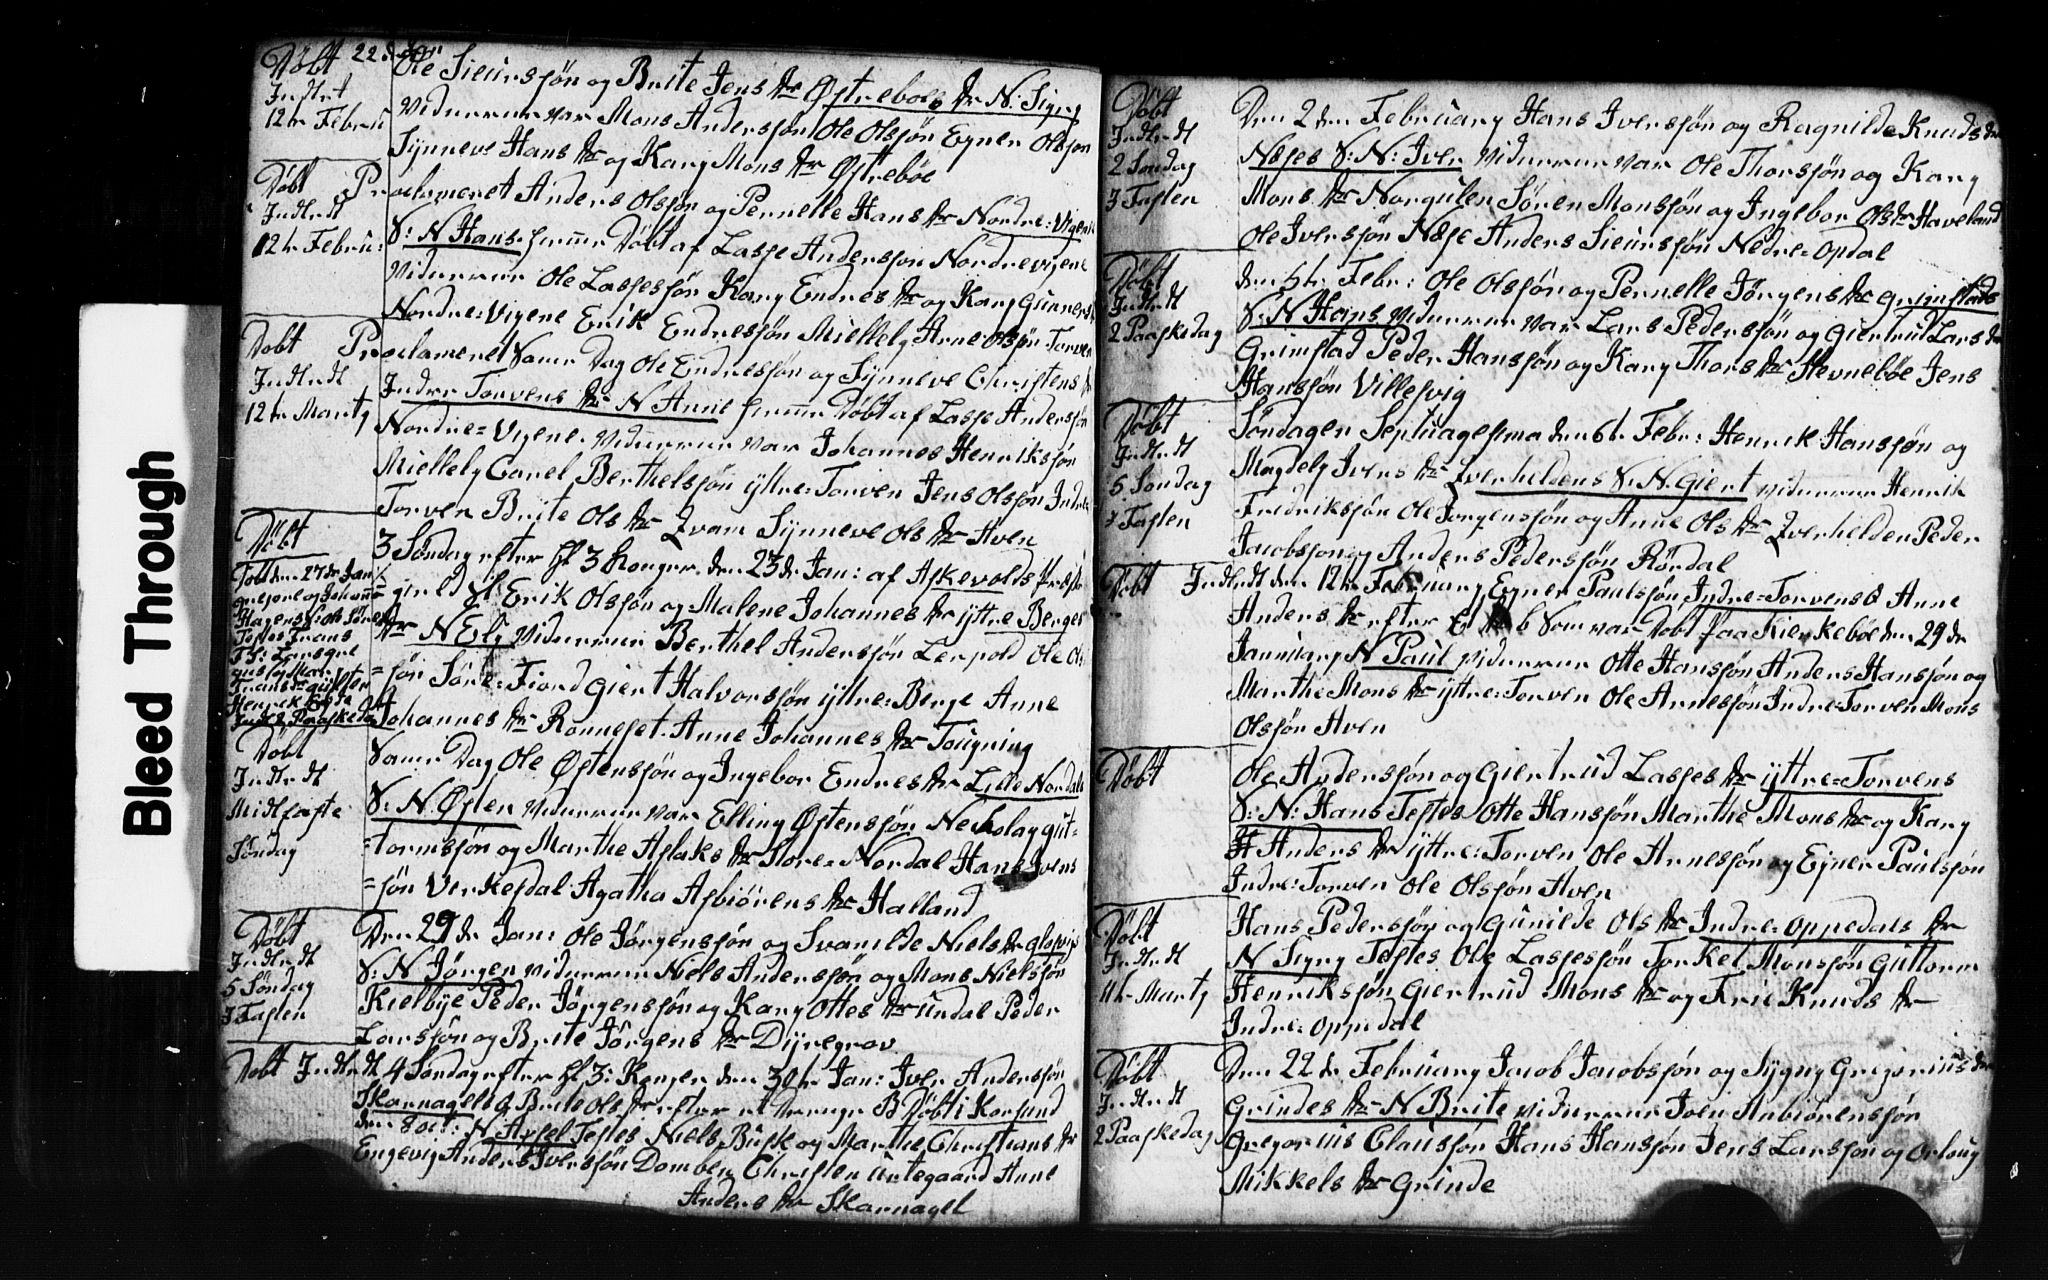 Bleed Through
Døbt 22 d
Indl:t
12te Febru
Ole Siursjøn og Brite Jens dr Østrebøes dr N: Sigry
Vidnerne var Mons Andersjøn Ole Olsjøn Egner Olsjøn
Synneve Hans dr og Kary Mons dr Østrebøe
Døbt
Indl:dt
12te Febru:
Proclameret Anders Olsjøn og Pernelle Hans dr Nordre=Vigene
S: N Hans. hiemme Døbt af Lasse Andersjøn Nordrevigene
Vidnerne Ole Lassesjøn Kary Endres dr og Kary Gunners
Nordre=Vigene Erik Endresjøn Miellely Arne Olsjøn Torven
Døbt
Indl:dt
12te Marty
Proclameret Samme Dag Ole Endresjøn og Synneve Christens dr
Indre Torvens dr N Anne hiemme Døbt af Lasse Andersjøn
Nordre=Vigene. Vidnerne var Johannes Henriksjøn
Miellely Carel Berthelsjøn yttre=Torven Jens Olsjøn Indre
Torven Brite Ols dr Qvam Synneve Ols dr Aven
Døbt
3 Søndag efter hl 3 Konger den 23de Jan: af Askevolds Præste
=gield hl: Erik Olsjøn og Malene Johannes dr yttre Berges
dr N Ely Vidnerne Berthel Andersjøn Leepold Ole Ol
=sjøn Søre=Fiord Giert Halvorsjøn yttre=Berge Anne
Johannes dr Ronneset Anne Johannes dr Tougning
Døbt
Indl:dt
Midtfaste
Søndag
Samme Dag Ole Østensjøn og Ingebor Endres dr Lille Nordals
S: N Østen Vidnerne var Elling Østensjøn Neckolay Gut=
=tormsjøn og Marthe Aslaks dr Store=Nordal Hans Ivers
=sjøn Verkesdal Agatha Asbiørens dr Halland
Døbt
Indl:dt
5 Søndag
I Fasten
Den 29de Jan: Ole Jørgensjøn og Svanilde Niels dr Glosvigs
S: N Jørgen Vidnerne Niels Andersjøn og Mons Nielsjøn
Kielbye Peder Jørgensjøn og Kary Ottes dr Undal Peder
Larssøn og Brite Jørgens dr Dyregrov
Døbt Indl:dt 4 Søndag efter hl 3: Konger den 30te Jan: Iver Andersjøn
Skarnagels & Brite Ols dr efter at Drenge B Døbt i Korsund
den 8 oct: N Axsel Testes Niels Busk og Marthe Christians dr
Engevig Anders Iversjøn Domben Christen Urtegaard Anne
Anders dr Skarnagel
Døbt
Indl:dt
2 Søndag
I Fasten
Den 2den February Hans Iversjøn og Ragnilde Knuds dr
Neses S: N: Iver Vidnerne var Ole Thorsjøn og Kary
Mons dr Norgulen Søren Monsjøn og Ingebor Ols dr Haveland
Ole Iversjøn Nese Anders Siursjøn Nedre=Opdal
Døbt
Indl:dt
2 Paaskedag
den 5te Febr: Ole Olsjøn og Pernelle Jørgens dr Grimstads
S: N Hans Vidnerne var Lars Pedersjøn og Giertrud Lars dr
Grimstad Peder Hansjøn og Kary Thors dr Hevnebøe Jens
Hansjøn Villesvig
Døbt
Indl:dt
5 Søndag
I Fasten
Søndagen Septuagesima den 6te Febr: Henrik Hansjøn og
Magdely Ivers dr Qverheldens S: N: Giert Vidnerne Henrik
Fredriksjøn Ole Jorgensjøn og Anne Ols dr Qverhelden Peder
Jacobsjøn og Anders Pedersjøn Rørdal
Døbt Indl:dt den 12te February Egner Paulsjøn Indre=Torvens & Anne
Anders dr efter Som var Døbt paa Kierkebøe den 29de
January N Paul Vidnerne Otte Hansjøn Anders Hansjøn og
Marthe Mons dr yttre=Torven Ole Arnesjøn Indre=Torven Mons
Olsjøn Aven
Døbt
Ole Andersjøn og Giertrud Lasses dr yttre=Torvens
S: N: Hans Testes Otte Hansjøn Marthe Mons dr og Kary
Anders dr yttre=Torven Ole Arnesjøn og Ejner Paulsjøn
Indre=Torven Ole Olsjøn Aven
Døbt
Indl:dt
11te Marty
Hans Pedersjøn og Gunilde Ols dr Indre=Oppedals dr
N Signy Testes Ole Lassesjøn Torkel Monsjøn Guttorm
Henriksjøn Giertrud Mons dr og Frie Knuds dr
Indre=Oppedal
Døbt
Indl:dt
2 Paaskedag
Den 22de February Jacob Jacobsjøn og Sygny Gregorius dr
Grindes dr N Brite Vidnerne Iver Anbiørensjøn
Gregorius Clausjøn Hans Hansjøn Jens Larsjøn og Orloug
Mikkels dr Grinde